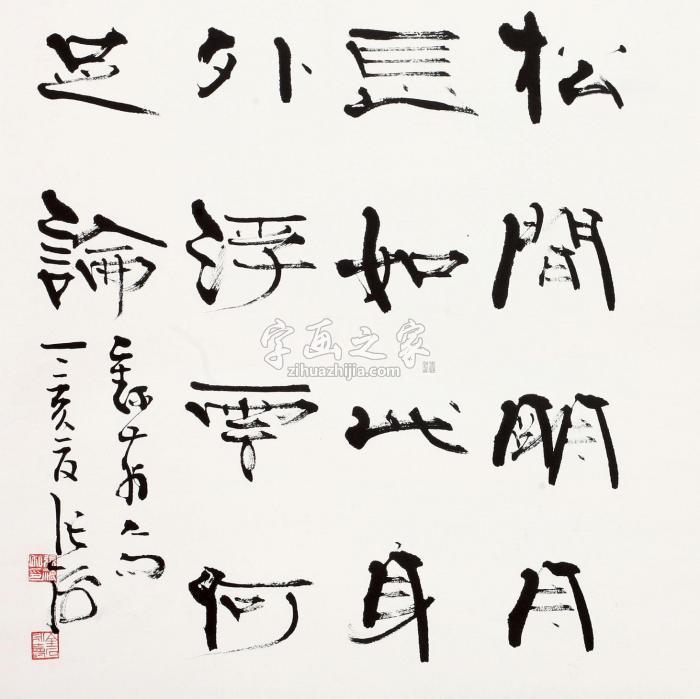 松間明月
長如此身
外浮雲何
足論
字画之家
zihuazhijia.com